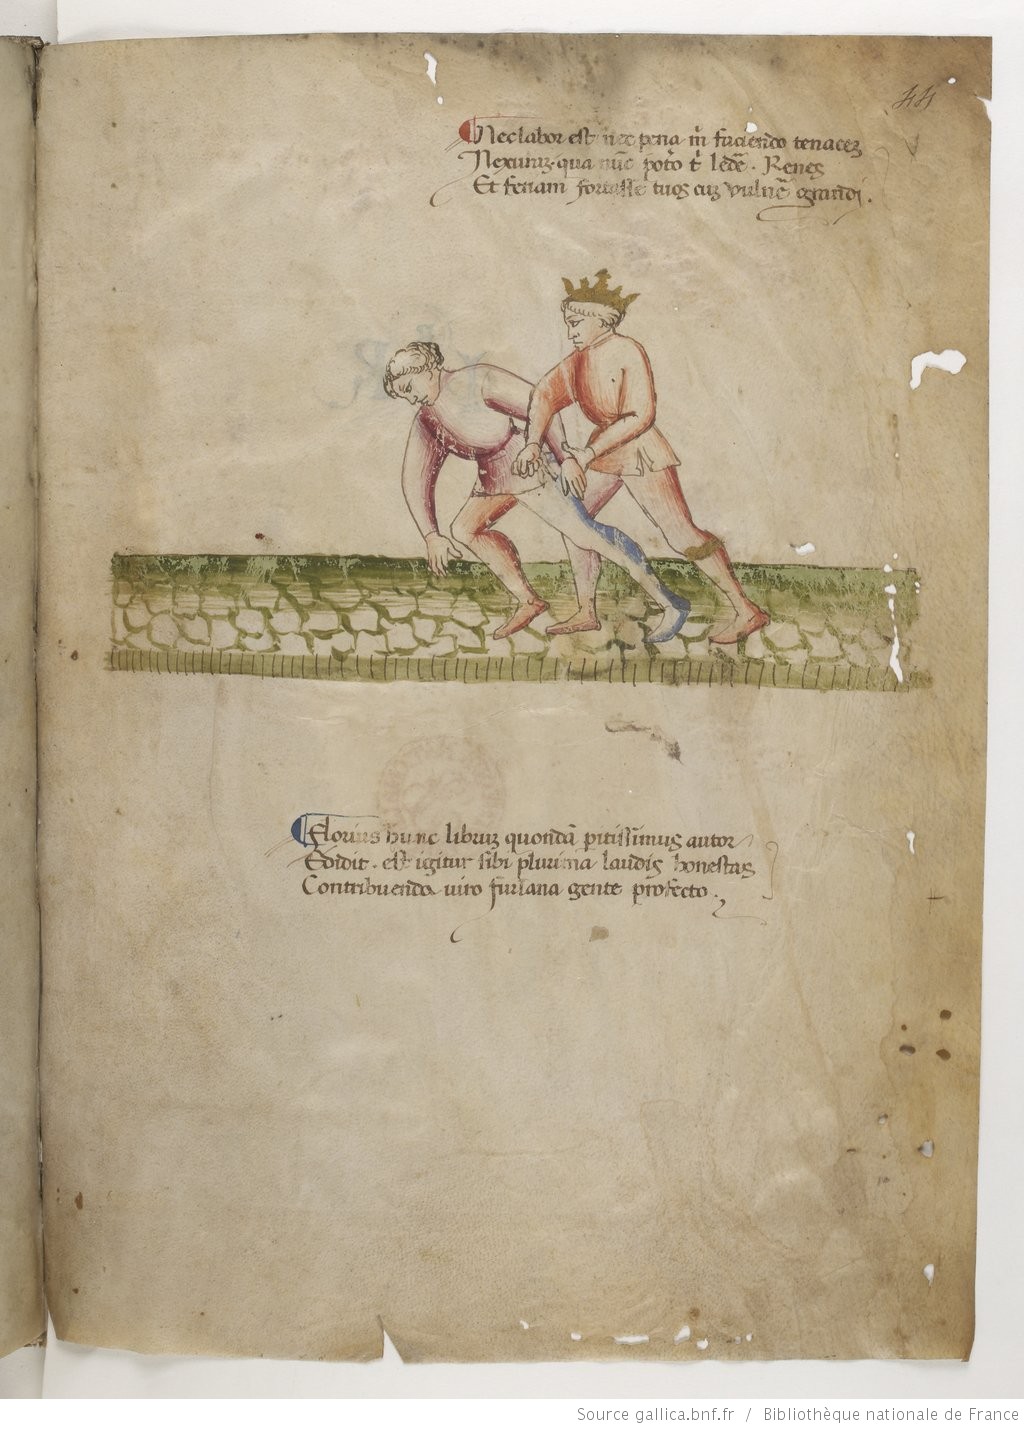 44
Nec labor est nec pena m̃ faciendo tenacem
Nexum; qua nũc pot̃o t̃ ledẽ. Renes
Et feriam fortasse tuos cum vulnẽ grandi.
Florius hunc librum quondã p̃itissimus autor
Edidit. est igitur sibi plurima laudis honestas
Contribuenda viro furlana gente profecto.
Source gallica.bnf.fr / Bibliothèque nationale de France